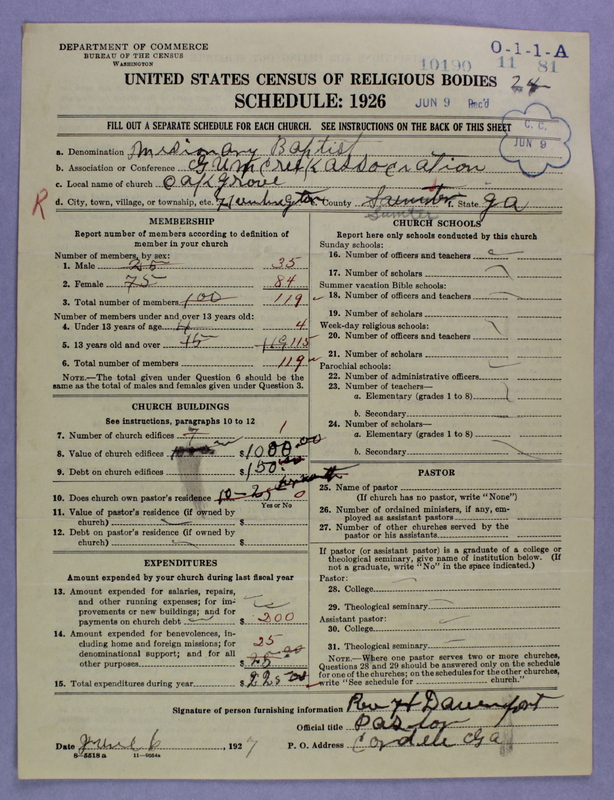 DEPARTMENT OF COMMERCE
BUREAU OF THE CENSUS
WASHINGTON
O-1-1-A
10190 11 81
UNITED STATES CENSUS OF RELIGIOUS BODIES 24
SCHEDULE: 1926 JUN 9 Rec'd
FILL OUT A SEPARATE SCHEDULE FOR EACH CHURCH. SEE INSTRUCTIONS ON THE BACK OF THIS SHEET
C. C.
JUN 9
a. Denomination Missionary Baptist
b. Association or Conference GUM creek association
c. Local name of church Oak Grove
R
d. City, town, village, or township, etc. Huntington County Sumter State ga
Sumter
MEMBERSHIP
Report number of members according to definition of member in your church
Number of members, by sex:
1. Male 25 35
2. Female 75 84
3. Total number of members 100 119
Number of members under and over 13 years old:
4. Under 13 years of age 4 4
5. 13 years old and over 15 119 115
6. Total number of members 119
NOTE.—The total given under Question 6 should be the
same as the total of males and females given under Question 3.
CHURCH BUILDINGS
See instructions, paragraphs 10 to 12
7. Number of church edifices 1
8. Value of church edifices $1000.00
9. Debt on church edifices $150.00
10. Does church own pastor's residence 0
Yes or No
11. Value of pastor's residence (if owned by
church) $
12. Debt on pastor's residence (if owned by
church) $
EXPENDITURES
Amount expended by your church during last fiscal year
13. Amount expended for salaries, repairs,
and other running expenses; for im-
provements or new buildings; and for
payments on church debt $ 200
14. Amount expended for benevolences, in-
cluding home and foreign missions; for
denominational support; and for all
other purposes $ 25
15. Total expenditures during year $225.00
CHURCH SCHOOLS
Report here only schools conducted by this church
Sunday schools:
16. Number of officers and teachers
17. Number of scholars
Summer vacation Bible schools:
18. Number of officers and teachers
19. Number of scholars
Week-day religious schools:
20. Number of officers and teachers
21. Number of scholars
Parochial schools:
22. Number of administrative officers
23. Number of teachers—
a. Elementary (grades 1 to 8)
b. Secondary
24. Number of scholars—
a. Elementary (grades 1 to 8)
b. Secondary
PASTOR
25. Name of pastor
(If church has no pastor, write "None")
26. Number of ordained ministers, if any, em-
ployed as assistant pastors
27. Number of other churches served by the
pastor or his assistants
If pastor (or assistant pastor) is a graduate of a college or
theological seminary, give name of institution below. (If
not a graduate, write "No" in the space indicated.)
Pastor:
28. College
29. Theological seminary
Assistant pastor:
30. College
31. Theological seminary
NOTE.—Where one pastor serves two or more churches,
Questions 28 and 29 should be answered only on the schedule
for one of the churches; on the schedules for the other churches,
write "See schedule for church."
Signature of person furnishing information Rev H Davenport
Official title Pastor
Date June 6, 1927 P. O. Address Cordele Ga
8-5518 a 11-9084a